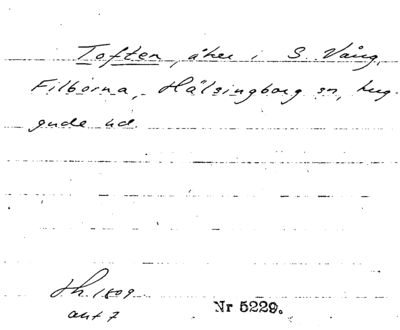 Toften, åker i S. Vång,
Filborna, Hälsingborg sn, Lug-
gude hd
Sh. 1809
akt 7
Nr 5229.